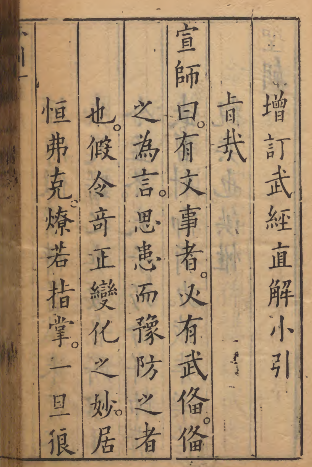 增訂武經直解小引
旨哉
宣師曰。有文事者。必有武俻。俻
之為言。思患而豫防之者
也。假令竒正變化之妙。居
恒弗克。燎若指掌。一旦狠